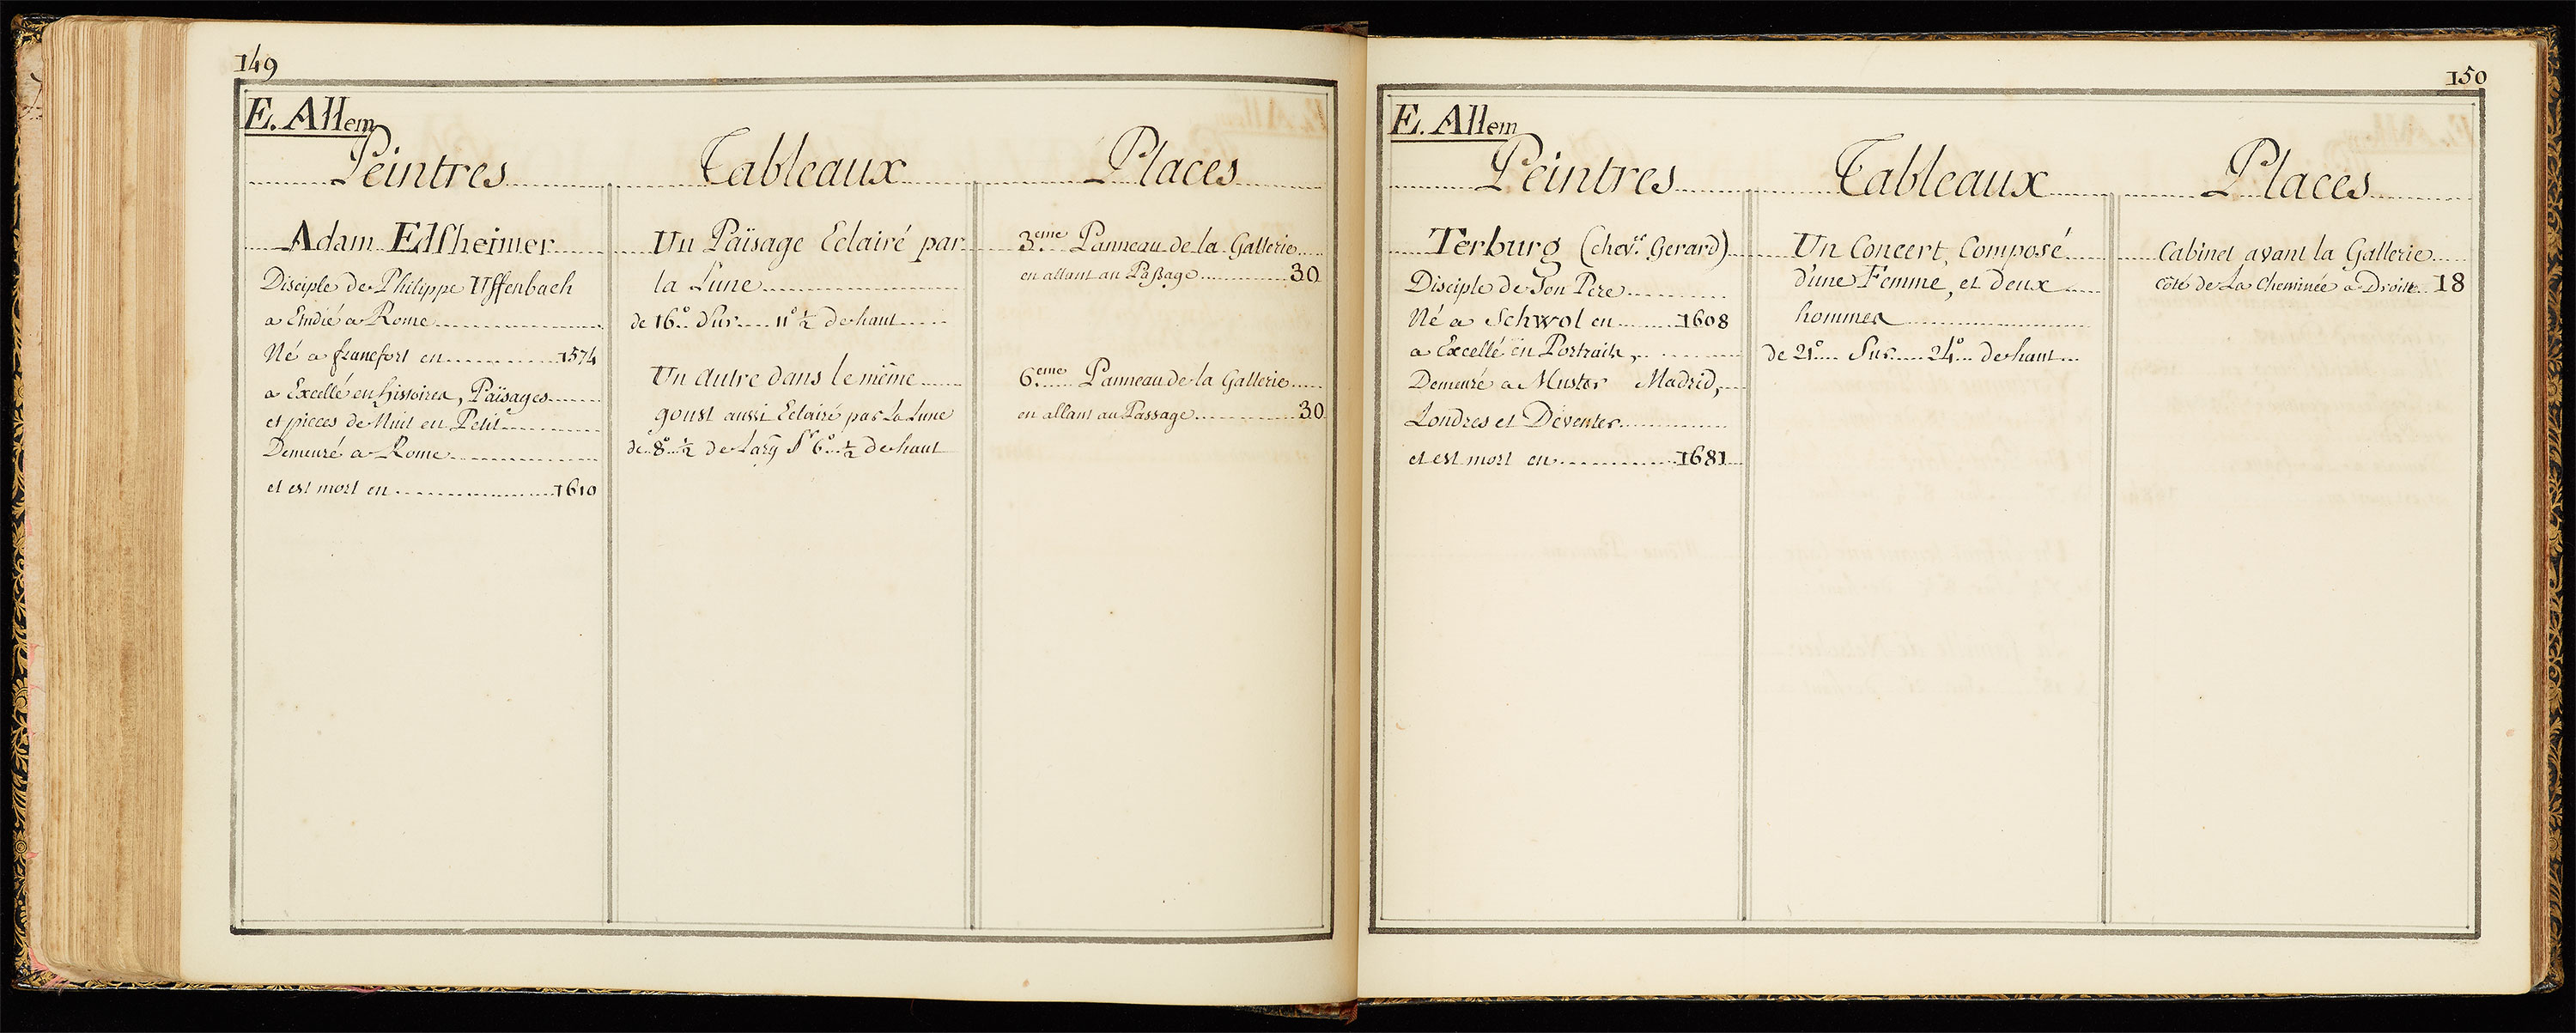 149
E. Allem
Peintres Tableaux Places
Adam Elsheimer
Disciple de Philippe Uffenbach
a Etudié a Rome
Né a francfort en 1574
a Excellé en histoires, Païsages
et pieces de Nuit en Petit
Demeuré a Rome
et est mort en 1610
Un Païsage Eclairé par
la Lune
de 16° Sur 11° ½ de haut
Un autre dans le même
goust aussi Eclairé par La Lune
de 8° ½ de Larg Sr 6° ½ de haut
3eme Panneau de la Gallerie
en allant au Paßage 30
6eme Panneau de la Gallerie
en allant au Passage 30
150
E. Allem
Peintres Tableaux Places
Terburg (chevr. Gerard)
Disciple de Son Pere
Né a Schwol en 1608
a Excellé en Portraits,
Demeuré a Muster Madrid,
Londres et Deventer
et est mort en 1681
Un Concert, Composé
d'une Femme, et deux
hommes
de 21° Sur 24° de haut
Cabinet avant la Gallerie
côté de La Cheminée a Droite 18